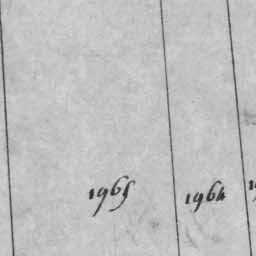 1965 1964